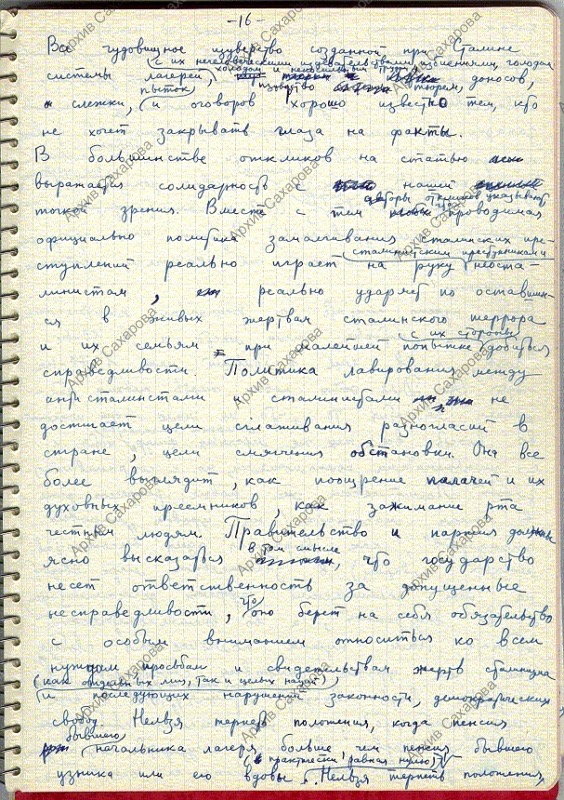 -16-
Все чудовищное изуверство созданной при Сталине
с их нечеловеческими издевательствами, избиениями, голодом
холодом и непосильным трудом
системы лагерей, доносов,
пыток, тюрем,
слежки, и оговоров хорошо известно тем, кто
не хочет закрывать глаза на факты.
В большинстве откликов на статью
выражается солидарность с нашей
авторы откликов указывают
точкой зрения. Вместе с тем проводимая
официально политика замалчивания сталинских пре-
сталинским преступникам и
ступлений реально играет на руку неоста-
линистам, реально ударяет по оставши-
ся в живых жертвам сталинского террора
с их стороны
и их семьям при малейшей попытке добиться
справедливости. Политика лавирования между
антисталинистами и сталинистами не
достигает цели сглаживания разногласий в
стране, цели смягчения обстановки. Она все
более выглядит, как поощрение палачей и их
духовных преемников, как зажимание рта
честным людям. Правительство и партия должны
в том числе
ясно высказаться, что государство
несет ответственность за допущенные
что
несправедливости, оно берет на себя обязательство
с особым вниманием относиться ко всем
нуждам просьбам и свидетельствам жертв сталинизма
(как отдельных лиц, так и целых наций),
и последующих нарушений законности, демократических
свобод. Нельзя терпеть положения, когда пенсия
бывшего
начальника лагеря больше чем пенсия бывшего
(практически равная нулю)
узника или его вдовы. Нельзя терпеть положения,
Архив Сахарова